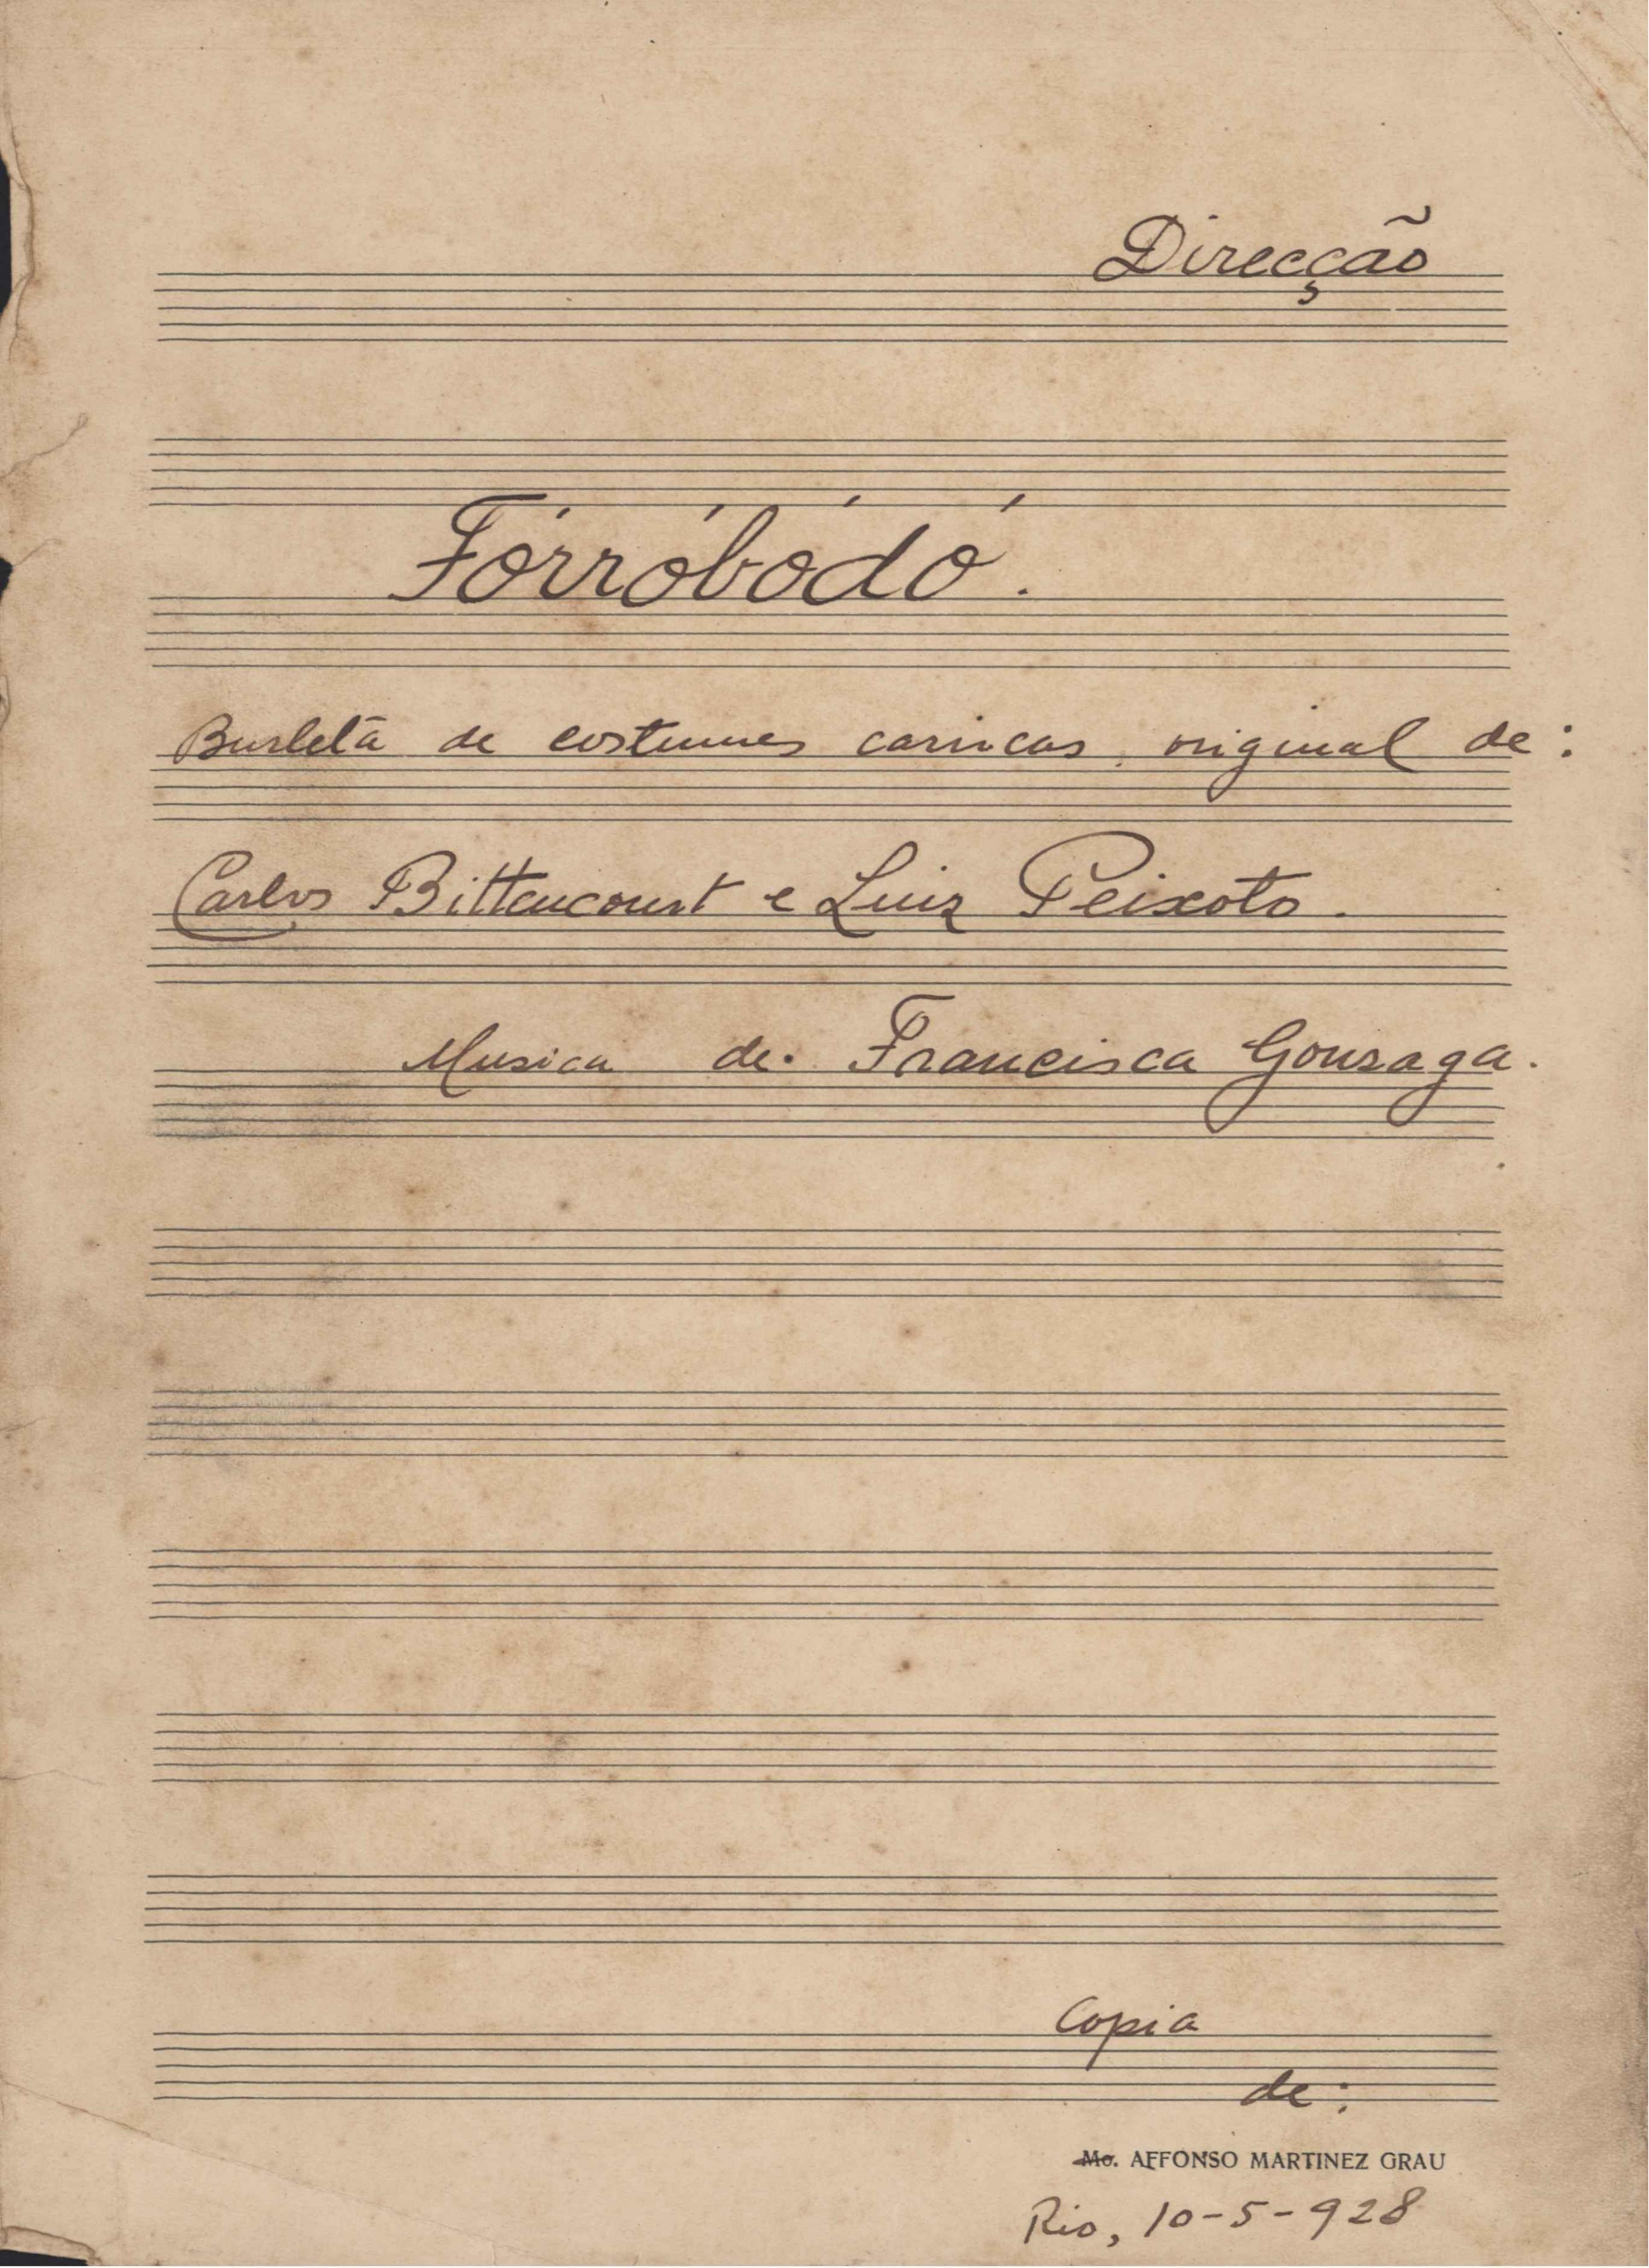 Direcção
Fórróbódó.
Burleta de costumes cariocas, original de:
Carlos Bittencourt e Luiz Peixoto.
Musica de. Francisca Gonzaga.
Copia
de:
Mo. AFFONSO MARTINEZ GRAU
Rio, 10-5-928